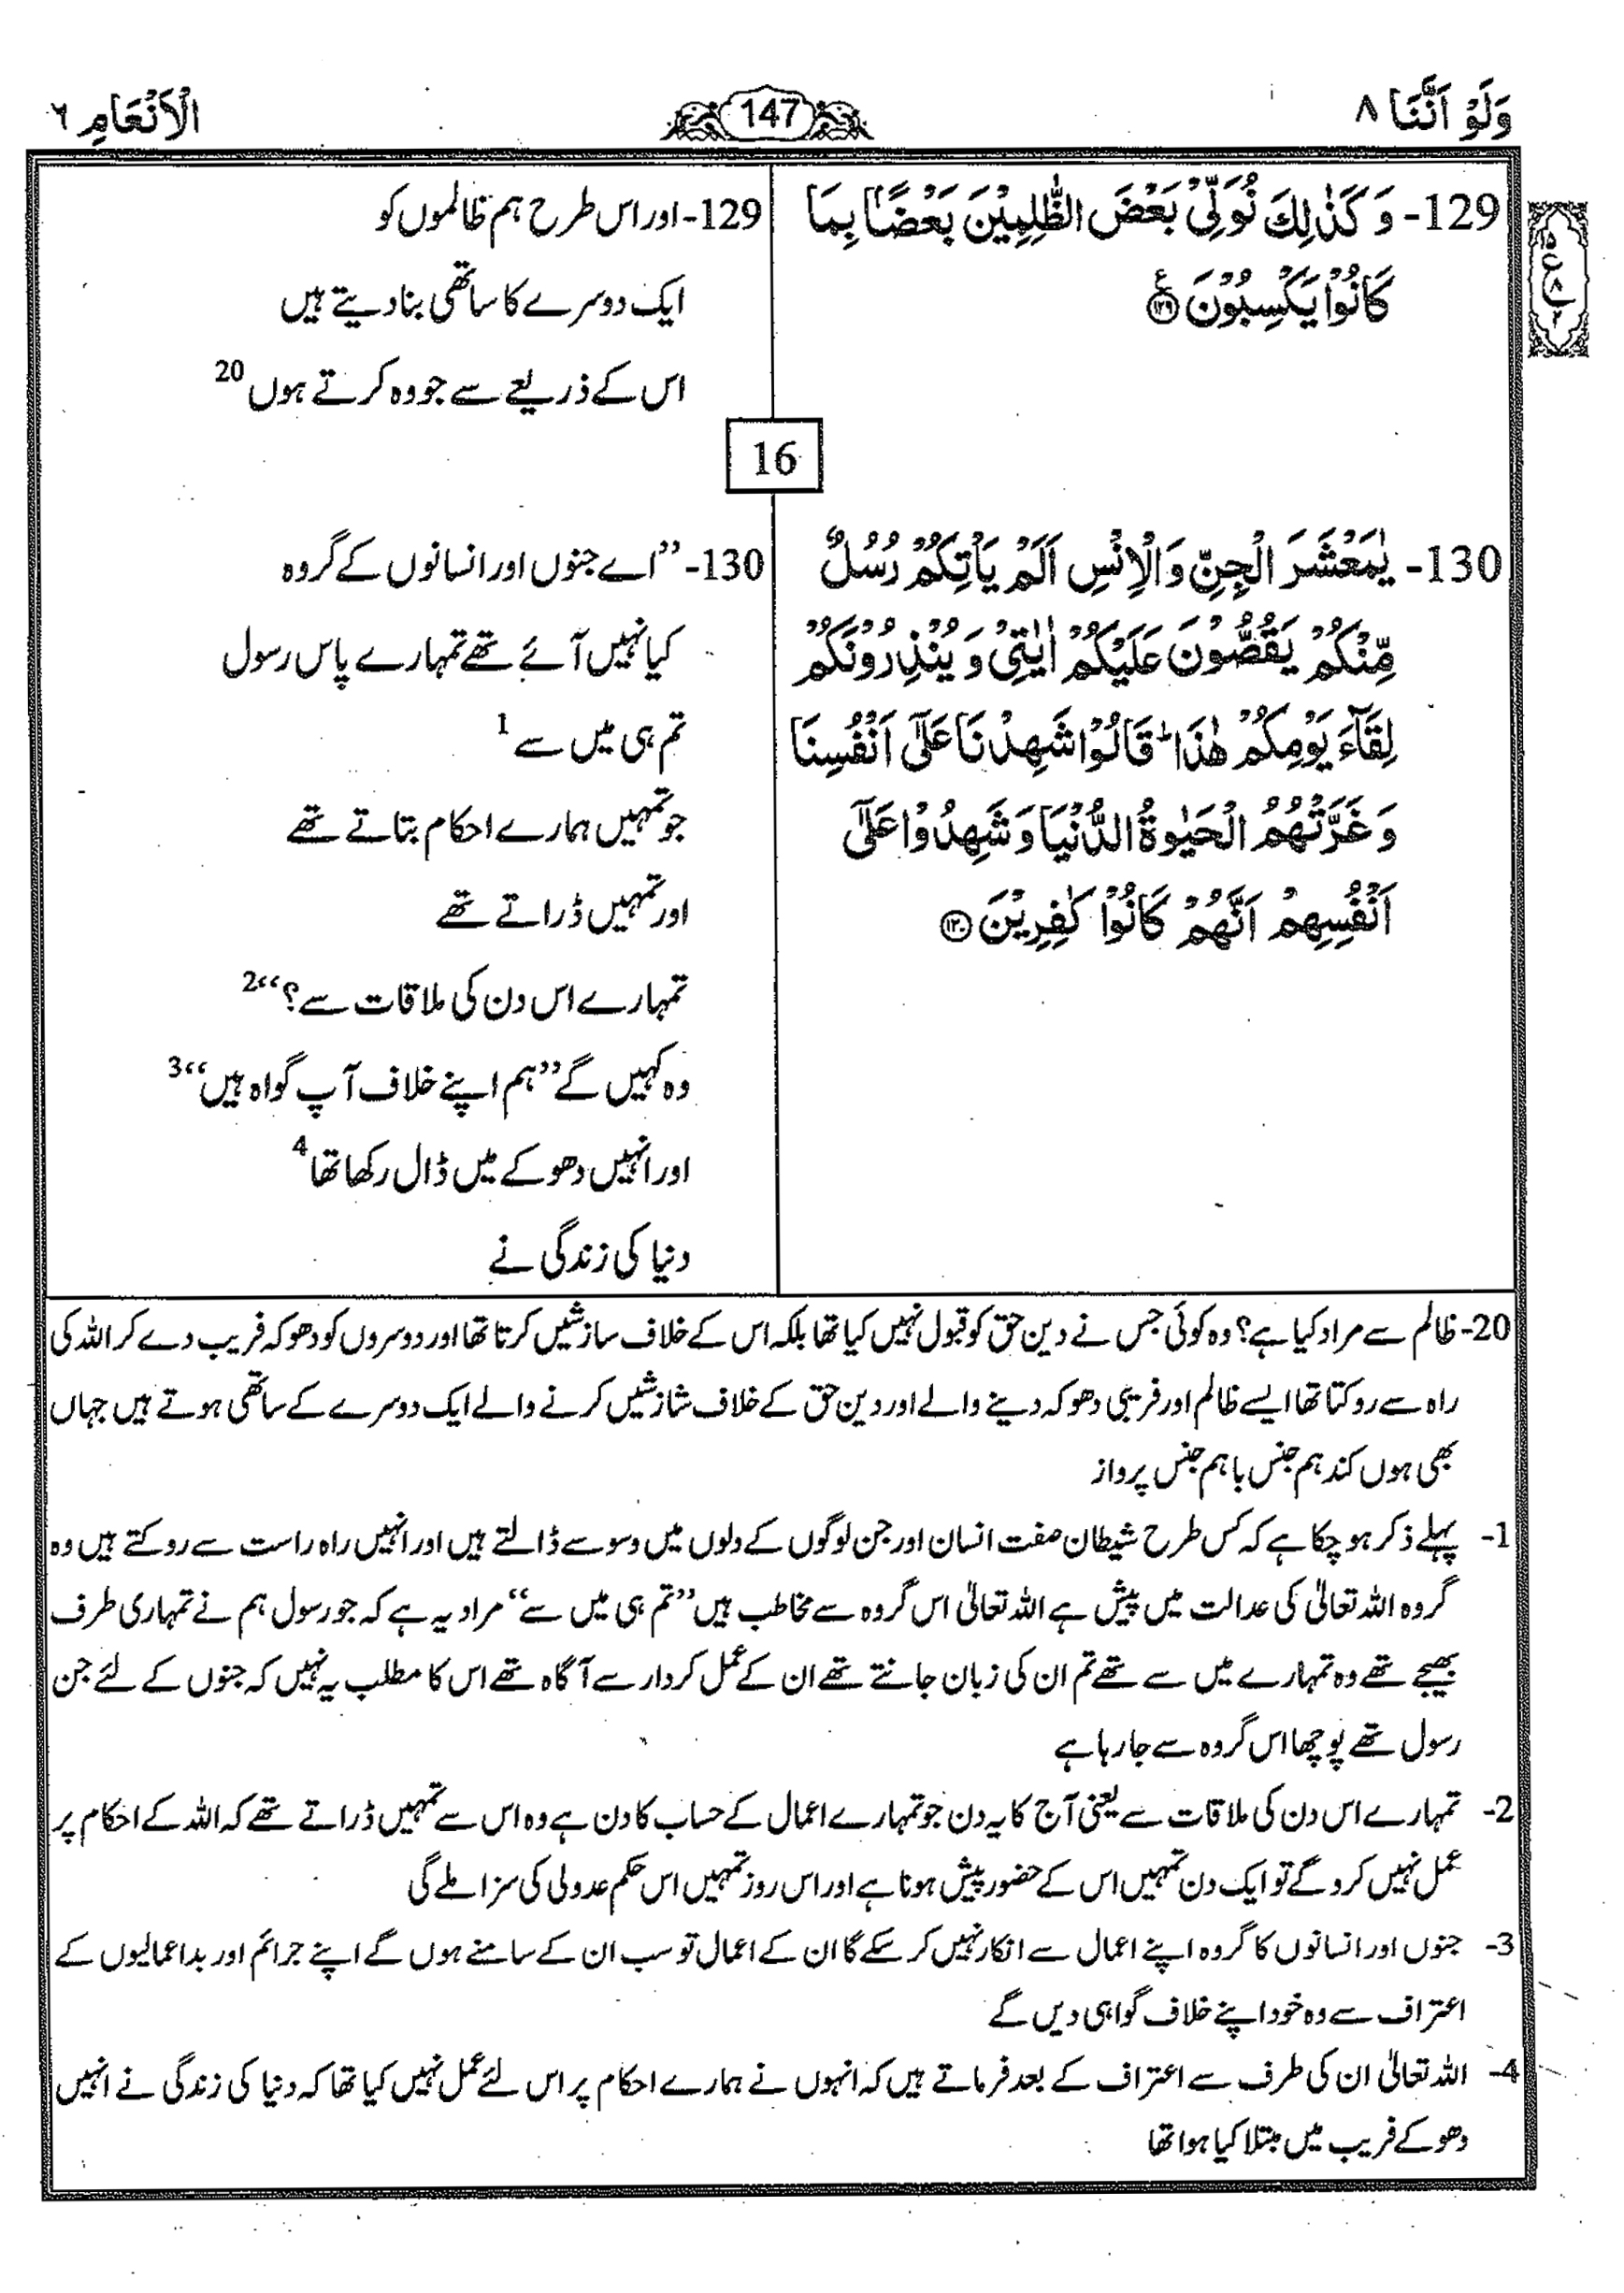 وَلَوْ اَنَّنَا ٨
147
الْاَنْعَامِ ٦
129- وَ كَذٰلِكَ نُوَلِّیْ بَعْضَ الظّٰلِمِیْنَ بَعْضًۢا بِمَا
كَانُوْا یَكْسِبُوْنَ ﴿١٢٩﴾ ع
129- اور اس طرح ہم ظالموں کو
ایک دوسرے کا ساتھی بنا دیتے ہیں
اس کے ذریعے سے جو وہ کرتے ہوں 20
16
130- یٰمَعْشَرَ الْجِنِّ وَالْاِنْسِ اَلَمْ یَاْتِكُمْ رُسُلٌ
مِّنْكُمْ یَقُصُّوْنَ عَلَیْكُمْ اٰیٰتِیْ وَ یُنْذِرُوْنَكُمْ
لِقَآءَ یَوْمِكُمْ هٰذَا ؕ قَالُوْا شَهِدْنَا عَلٰۤی اَنْفُسِنَا
وَ غَرَّتْهُمُ الْحَیٰوةُ الدُّنْیَا وَ شَهِدُوْا عَلٰۤی
اَنْفُسِهِمْ اَنَّهُمْ كَانُوْا كٰفِرِیْنَ ﴿١٣٠﴾
130- ”اے جنوں اور انسانوں کے گروہ
کیا نہیں آئے تھے تمہارے پاس رسول
تم ہی میں سے 1
جو تمہیں ہمارے احکام بتاتے تھے
اور تمہیں ڈراتے تھے
تمہارے اس دن کی ملاقات سے؟“ 2
وہ کہیں گے ”ہم اپنے خلاف آپ گواہ ہیں“ 3
اور انہیں دھوکے میں ڈال رکھا تھا 4
دنیا کی زندگی نے
١٥
ع
٨
٢
20- ظالم سے مراد کیا ہے؟ وہ کوئی جس نے دین حق کو قبول نہیں کیا تھا بلکہ اس کے خلاف سازشیں کرتا تھا اور دوسروں کو دھوکہ فریب دے کر اللہ کی
راہ سے روکتا تھا ایسے ظالم اور فریبی دھوکہ دینے والے اور دین حق کے خلاف شازشیں کرنے والے ایک دوسرے کے ساتھی ہوتے ہیں جہاں
بھی ہوں کند ہم جنس باہم جنس پرواز
1- پہلے ذکر ہو چکا ہے کہ کس طرح شیطان صفت انسان اور جن لوگوں کے دلوں میں وسوسے ڈالتے ہیں اور انہیں راہ راست سے روکتے ہیں وہ
گروہ اللہ تعالیٰ کی عدالت میں پیش ہے اللہ تعالیٰ اس گروہ سے مخاطب ہیں ”تم ہی میں سے“ مراد یہ ہے کہ جو رسول ہم نے تمہاری طرف
بھیجے تھے وہ تمہارے میں سے تھے تم ان کی زبان جانتے تھے ان کے عمل کردار سے آگاہ تھے اس کا مطلب یہ نہیں کہ جنوں کے لئے جن
رسول تھے پوچھا اس گروہ سے جا رہا ہے
2- تمہارے اس دن کی ملاقات سے یعنی آج کا یہ دن جو تمہارے اعمال کے حساب کا دن ہے وہ اس سے تمہیں ڈراتے تھے کہ اللہ کے احکام پر
عمل نہیں کرو گے تو ایک دن تمہیں اس کے حضور پیش ہونا ہے اور اس روز تمہیں اس حکم عدولی کی سزا ملے گی
3- جنوں اور انسانوں کا گروہ اپنے اعمال سے انکار نہیں کر سکے گا ان کے اعمال تو سب ان کے سامنے ہوں گے اپنے جرائم اور بداعمالیوں کے
اعتراف سے وہ خود اپنے خلاف گواہی دیں گے
4- اللہ تعالیٰ ان کی طرف سے اعتراف کے بعد فرماتے ہیں کہ انہوں نے ہمارے احکام پر اس لئے عمل نہیں کیا تھا کہ دنیا کی زندگی نے انہیں
دھوکے فریب میں مبتلا کیا ہوا تھا